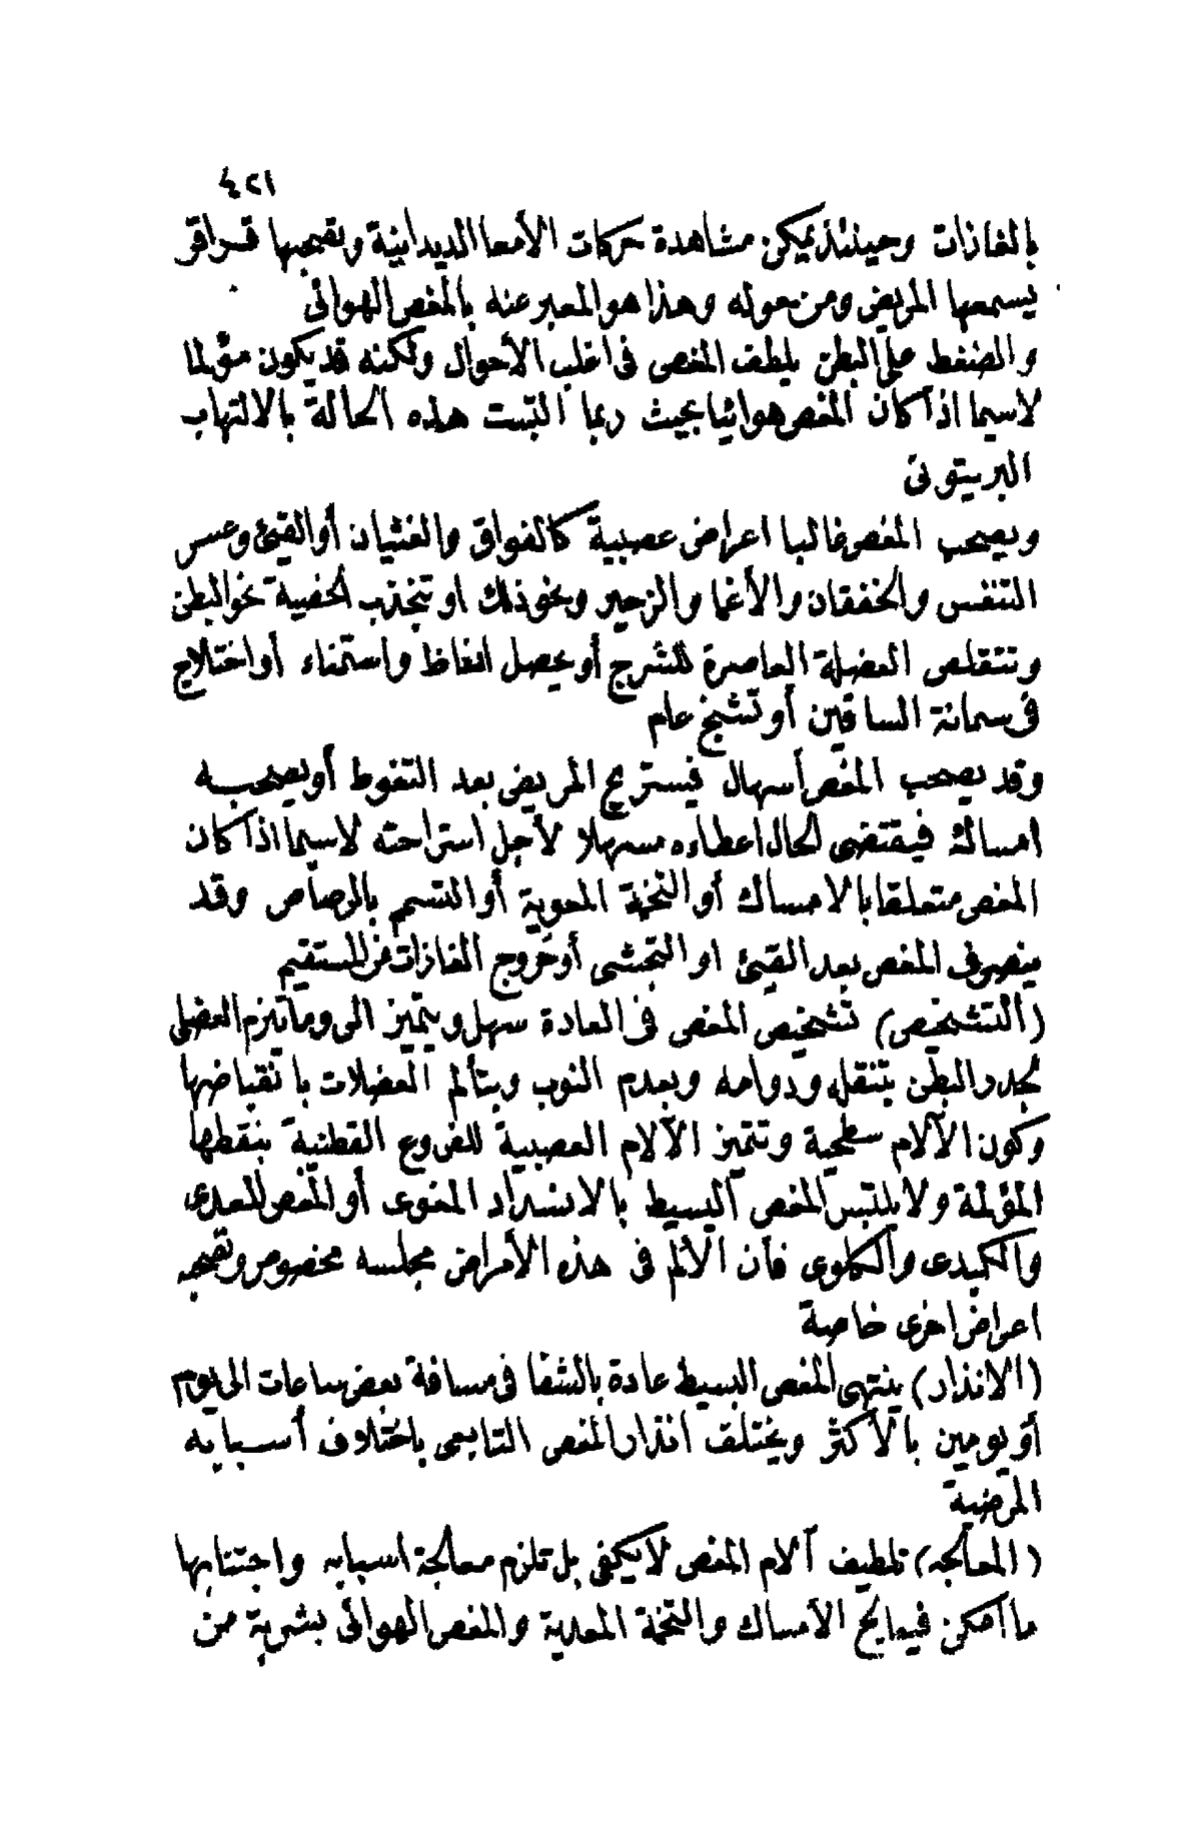 ٤٢١
بالغازات وحينئذ يمكن مشاهدة حركات الأمعا الديدانية وتصحبها قراقر
يسمعها المريض ومن حوله وهذا هو المعبر عنه بالمغص الهوائى
والضغط على البطن يلطف المغص فى اغلب الأحوال ولكنه قد يكون مؤلما
لاسيما اذا كان المغص هوائيا بحيث ربما التبست هذه الحالة بالالتهاب
البريتونى
ويصحب المغص غالبا اعراض عصبية كالفواق والغثيان أو القيئ وعسر
التنفس والخفقان والأغما والزحير ونحو ذلك او تنجذب الخصية نحو البطن
وتتقلص العضلة العاصرة للشرج أو يحصل انعاظ واستمناء أو اختلاج
فى سمانة الساقين أو تشنج عام
وقد يصحب المغص أسهال فيستريح المريض بعد التغوط أو يصحبه
امساك فيقتضى الحال اعطاءه مسهلا لأجل استراحته لاسيما اذا كان
المغص متعلقا بالامساك أو التخمة المعوية أو التسمم بالرصاص وقد
ينصرف المغص بعد القيئ او التجشى أو خروج الغازات من المستقيم
(التشخيص) تشخيص المغص فى العادة سهل ويتميز الروماتيزم العضلى
لجدر البطن بتنقله ودوامه وبعدم النوب وبتألم العضلات بانقباضها
وكون الآلام سطحية وتتميز الآلام العصبية للفروع القطنية بنقطها
المؤلمة ولا يلتبس المغص البسيط بالانسداد المعوى أو المغص المعدى
والكبدى والكلوى فأن الألم فى هذه الأمراض مجلسه مخصوص وتصحبه
اعراض اخرى خاصة
(الانذار) ينتهى المغص البسيط عادة بالشفا فى مسافة بعض ساعات الى يوم
أو يومين بالأكثر ويختلف انذار المغص التابعى باختلاف أسبابه
المرضية
(المعالجة) تلطيف آلام المغص لا يكفى بل تلزم معالجة اسبابه واجتنابها
ما امكن فيعالج الأمساك والتخمة المعدية والمغص الهوائى بشربة من